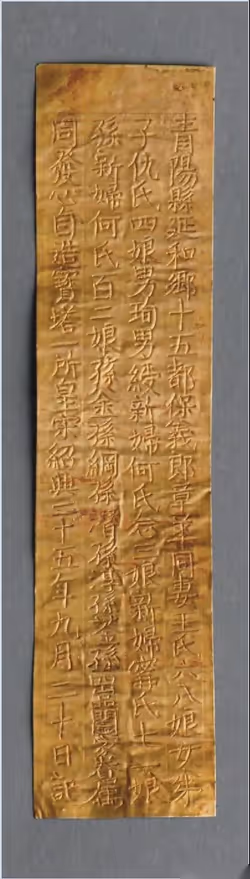 青陽縣延和鄉十五都保義郎章同妻王氏六八娘女弟
子仇氏四娘男珣男綬新婦何氏念三娘新婦甯氏十一娘
孫新婦何氏百二娘孫金孫綱孫孫孫孫闔家眷屬
同發心自造寶塔一所皇宋紹興二十五年九月二十日記